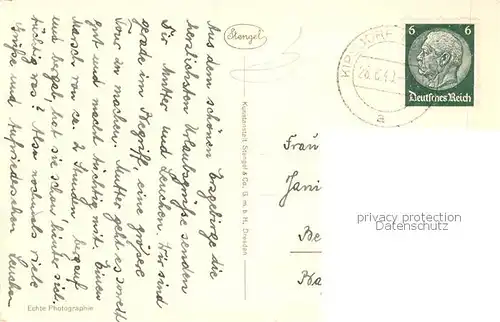 Aus dem schönen Erzgebirge die
herzlichsten Urlaubsgrüsse senden
Dir Mutter und Lenchen. Wir sind
gerade im Begriff, eine grössere
Tour zu machen. Mutter geht es soweit
gut und macht tüchtig mit. Einen
Marsch von ca. 2 Stunden bergauf
und bergab, hat sie schon hinter sich.
tüchtig was? Also nochmals viele
Grüsse und Aufwiedersehen
Lenchen
Echte Photographie
Stengel
Kunstanstalt Stengel & Co. G. m. b. H., Dresden
6 6
Deutsches Reich
Frau
privacy protection
Datenschutz